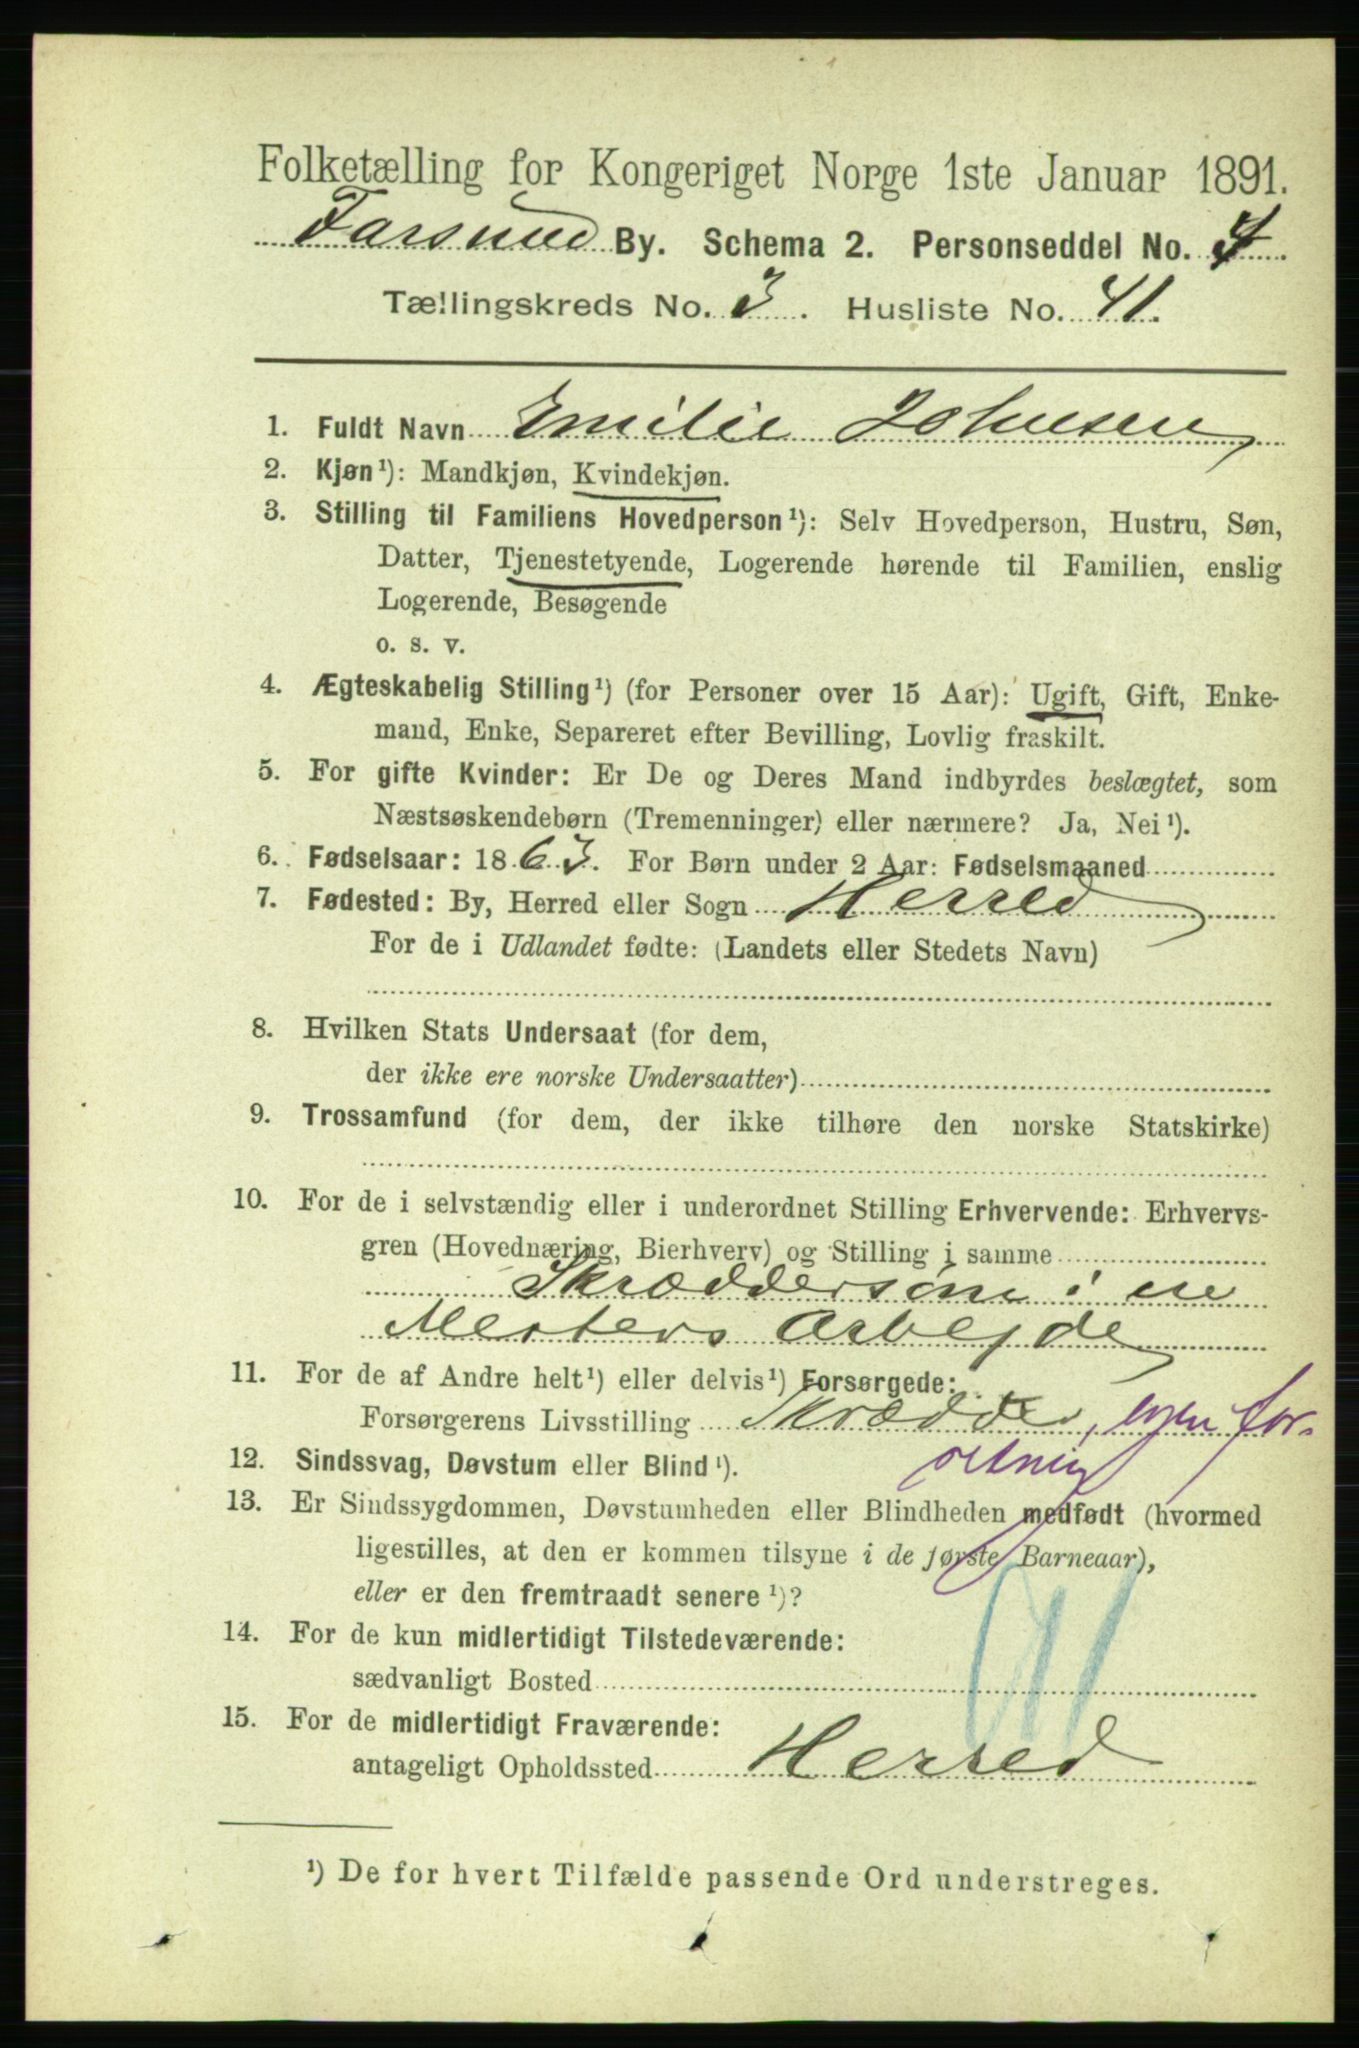 Folketælling for Kongeriget Norge 1ste Januar 1891.
Farsund By. Schema 2. Personseddel No. 4
Tællingskreds No. 3. Husliste No. 41.
1. Fuldt Navn Emilie Johnsen
2. Kjøn¹): Mandkjøn, Kvindekjøn.
3. Stilling til Familiens Hovedperson¹): Selv Hovedperson, Hustru, Søn,
Datter, Tjenestetyende, Logerende hørende til Familien, enslig
Logerende, Besøgende
o. s. v.
4. Ægteskabelig Stilling¹) (for Personer over 15 Aar): Ugift, Gift, Enke-
mand, Enke, Separeret efter Bevilling, Lovlig fraskilt.
5. For gifte Kvinder: Er De og Deres Mand indbyrdes beslægtet, som
Næstsøskendebørn (Tremenninger) eller nærmere? Ja, Nei¹).
6. Fødselsaar: 1863. For Børn under 2 Aar: Fødselsmaaned
7. Fødested: By, Herred eller Sogn Herred
For de i Udlandet fødte: (Landets eller Stedets Navn)
8. Hvilken Stats Undersaat (for dem,
der ikke ere norske Undersaatter)
9. Trossamfund (for dem, der ikke tilhøre den norske Statskirke)
10. For de i selvstændig eller i underordnet Stilling Erhvervende: Erhvervs-
gren (Hovednæring, Bierhverv) og Stilling i samme
i en
Mesters Arbejde
11. For de af Andre helt¹) eller delvis¹) Forsørgede:
Forsørgerens Livsstilling Skrædder, egen for-
retning
12. Sindssvag, Døvstum eller Blind¹).
13. Er Sindssygdommen, Døvstumheden eller Blindheden medfødt (hvormed
ligestilles, at den er kommen tilsyne i de første Barneaar),
eller er den fremtraadt senere¹)?
14. For de kun midlertidigt Tilstedeværende:
sædvanligt Bosted
15. For de midlertidigt Fraværende:
antageligt Opholdssted Herred
¹) De for hvert Tilfælde passende Ord understreges.